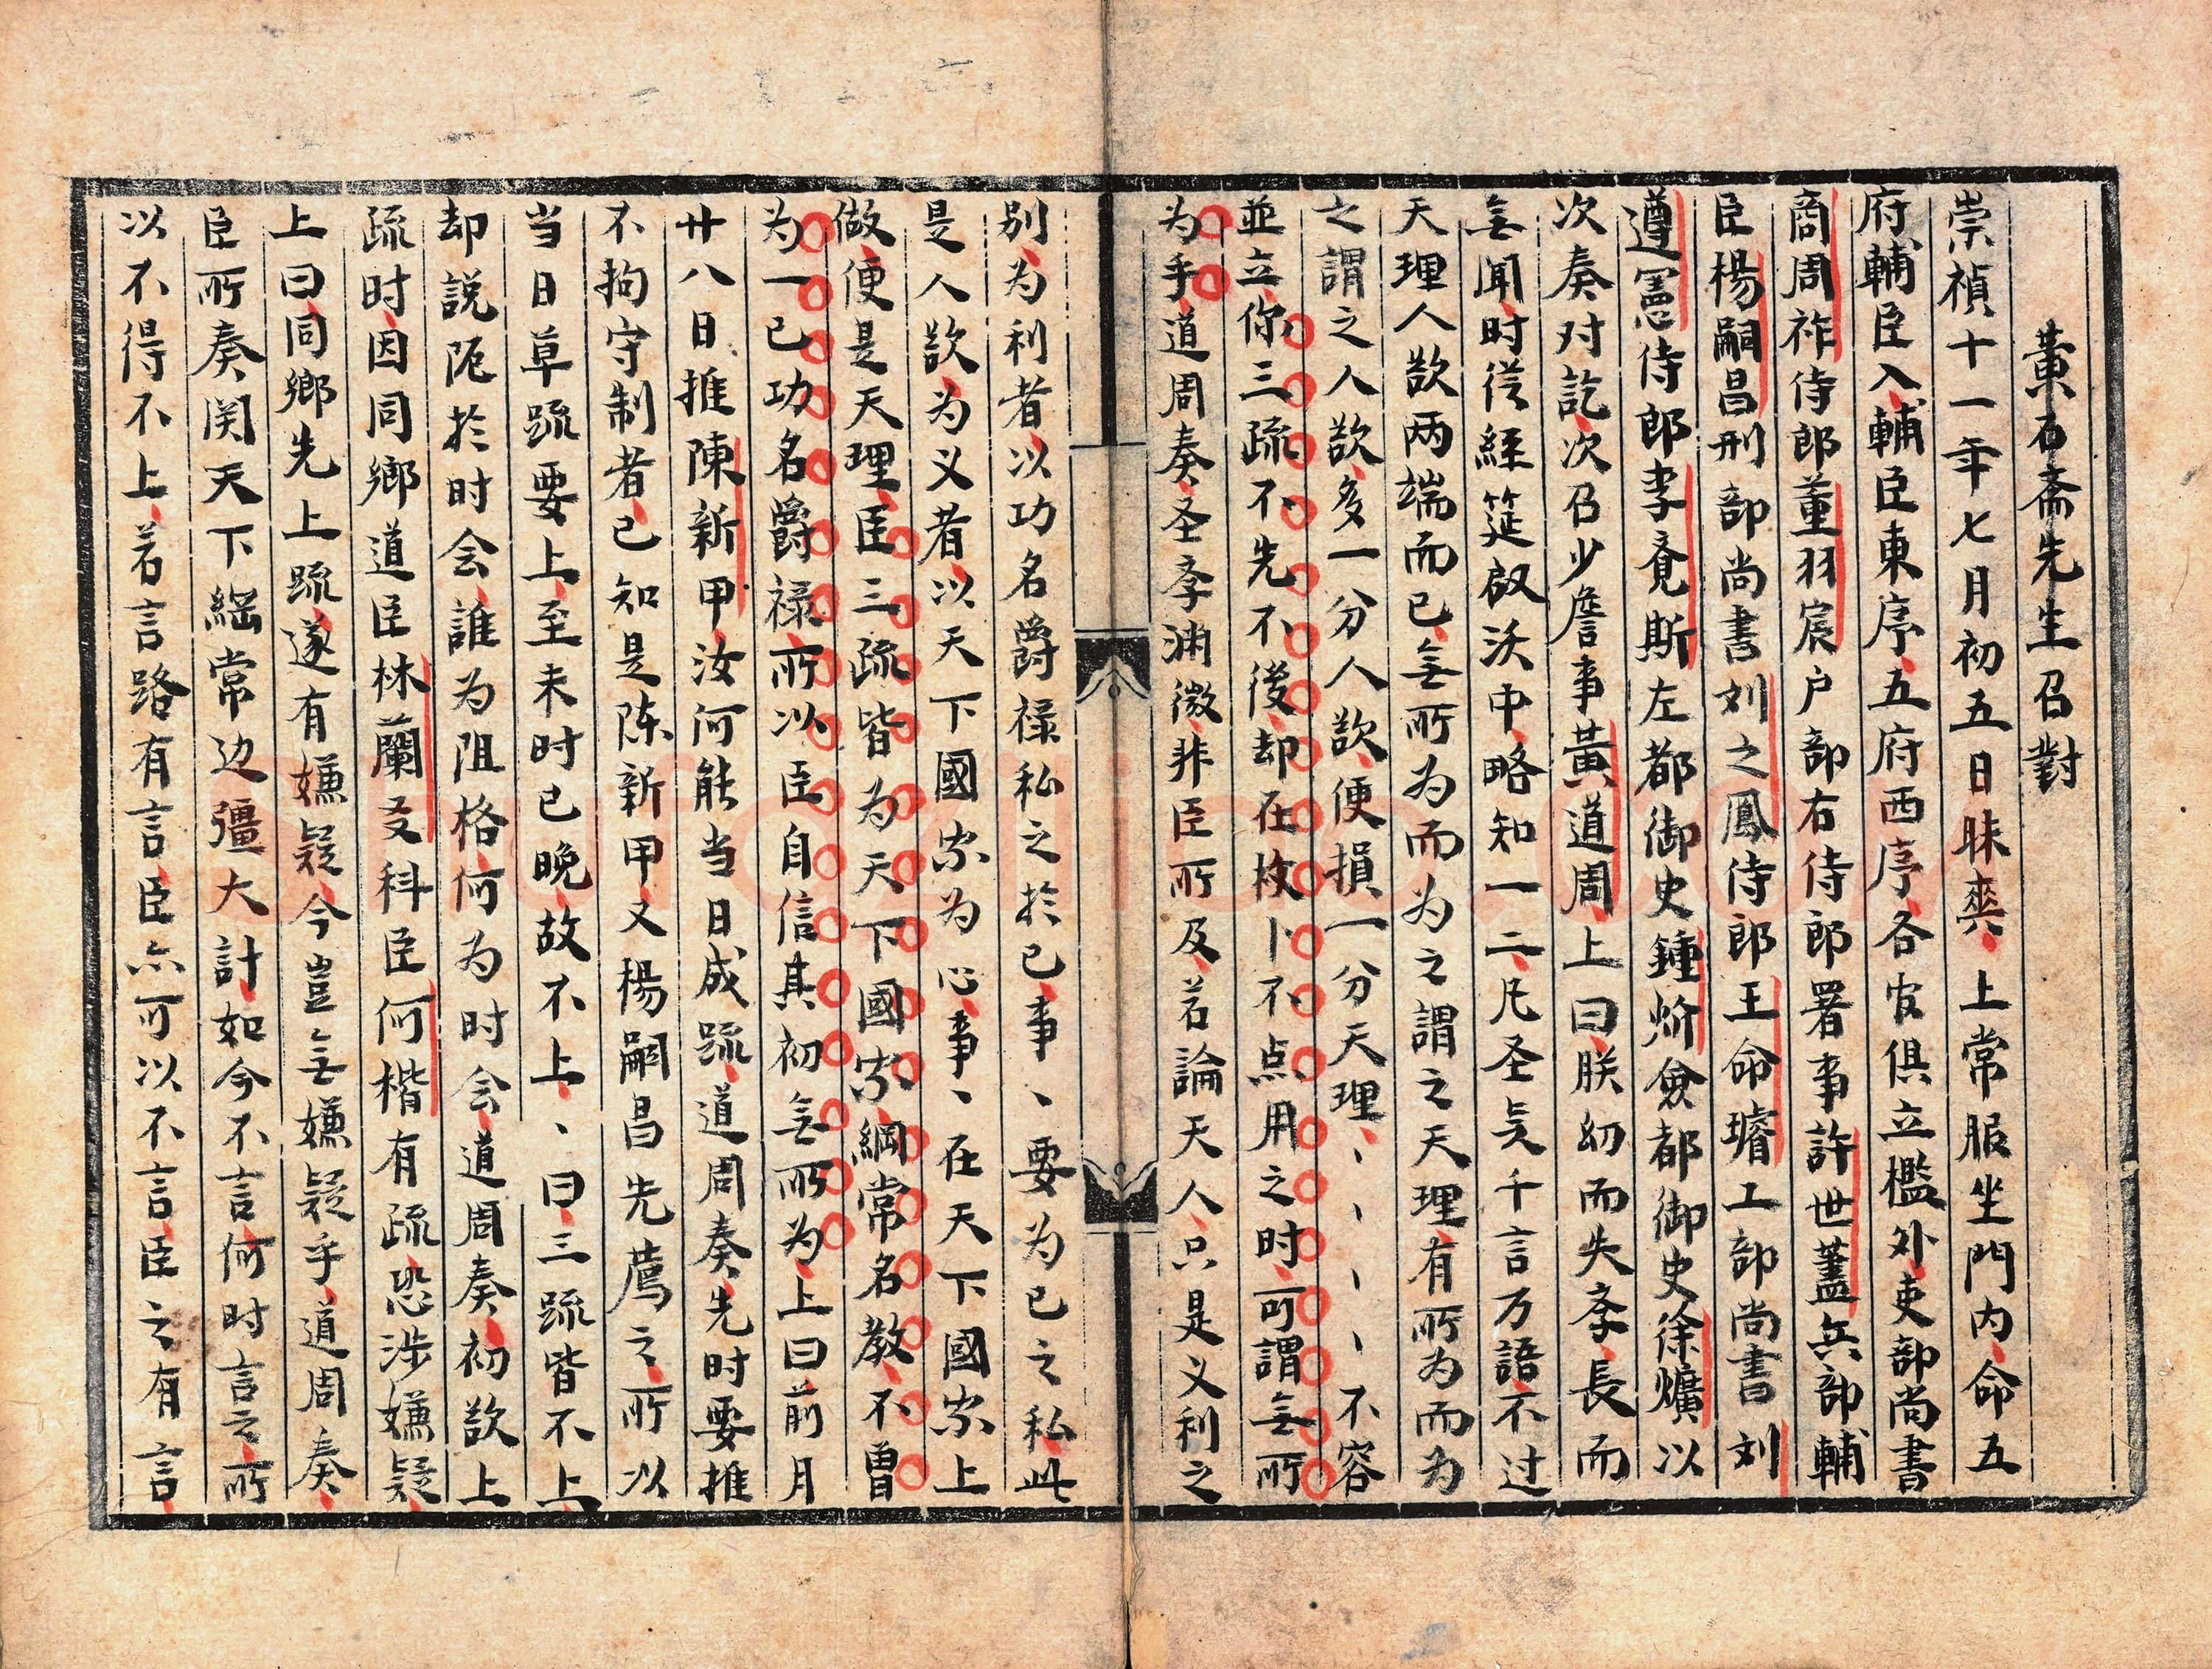 黄石斋先生召對
崇禎十一年七月初五日昧爽上常服坐門内命五
府輔臣入輔臣東序五府西序各官俱立檻外吏部尚書
商周祚侍郎董羽宸户部右侍郎署事許世蓋兵部輔
臣楊嗣昌刑部尚書刘之鳳侍郎王命璿工部尚書刘
遵憲侍郎李竟斯左都御史鍾炌僉都御史徐爌以
次奏对訖次召少詹事黄道周上曰朕幼而失李長而
无聞时從經筵啟沃中略知一二凡圣矣千言万語不过
天理人欲两端而已无所为而为之謂之天理有所为而为
之謂之人欲多一分人欲便損一分天理、、、、不容
並立你三疏不先不後却在枚卜不点用之时可謂无所
为乎道周奏圣李渊微非臣所及若論天人只是义利之
别为利者以功名爵禄私之於已事、要为已之私此
是人欲为义者以天下國家为心事、在天下國家上
做便是天理臣三疏皆为天下國家綱常名教不曾
为一已功名爵禄所以臣自信其初无所为上曰前月
廿八日推陳新甲汝何能当日成疏道周奏先时要推
不拘守制者已知是陈新甲又楊嗣昌先薦之所以
当日草疏要上至未时已晚故不上、曰三疏皆不上
却説阨於时会誰为阻格何为时会道周奏初欲上
疏时因同鄉道臣林蘭友科臣何楷有疏恐涉嫌疑
上曰同鄉先上疏遂有嫌疑今豈无嫌疑乎道周奏
臣所奏関天下綱常边彊大計如今不言何时言之所
以不得不上若言路有言臣亦可以不言臣之有言